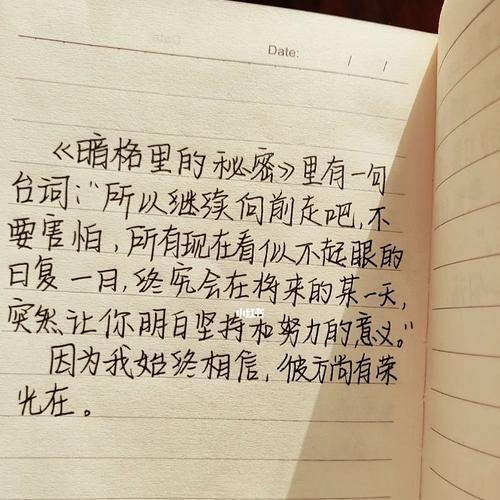 Date: / /
《暗格里的秘密》里有一句
台词:"所以继续向前走吧,不
要害怕,所有现在看似不起眼的
日复一日,终究会在将来的某一天,
突然让你明白坚持和努力的意义。"
小红书
因为我始终相信,彼方尚有荣
光在。